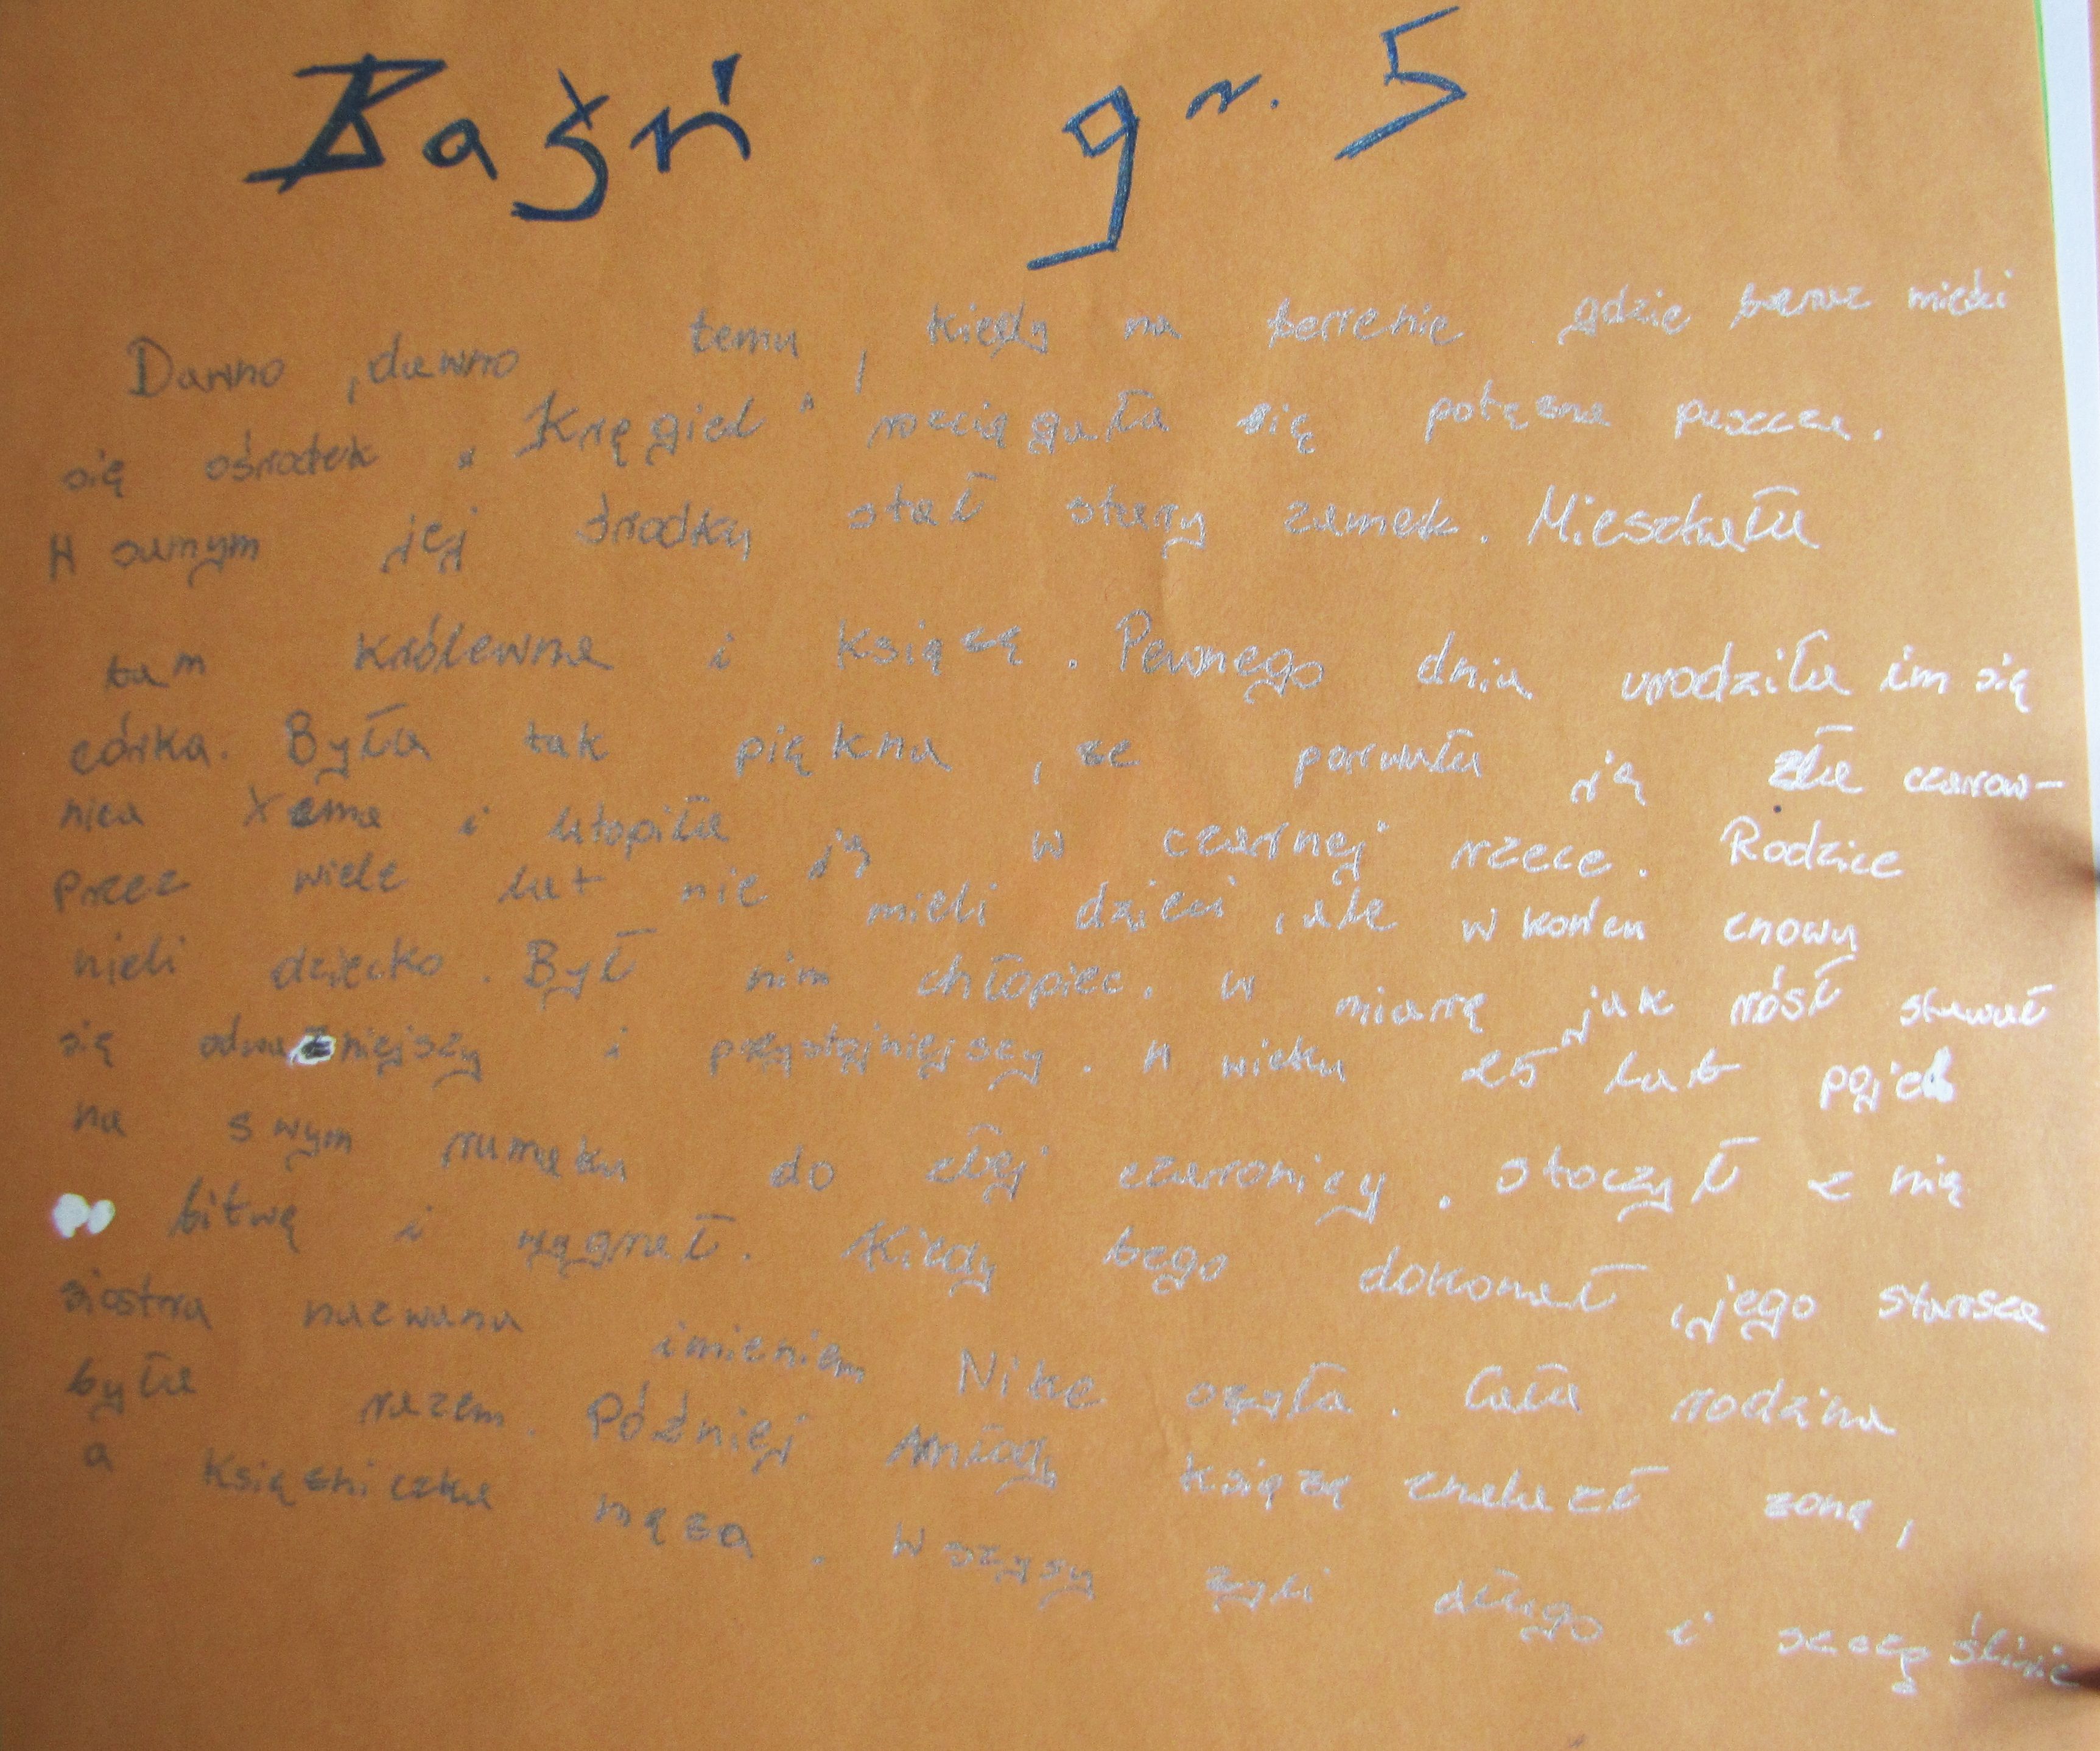 Baśń gr. 5
Dawno, dawno temu, kiedy na terrenie gdzie teraz mieści
się ośrodek „Kręgiel" rociągała się potęzna puszcza.
W samym jej środku stał stary zamek. Mieszkała
tam królewna i książę. Pewnego dnia urodziła im się
córka. Była tak piękna, ze porwała ją zła czarow-
nica Xema i utopiła ją w czarnej rzece. Rodzice
Przez wiele lat nie mieli dzieci, ale w końcu znowu
mieli dziecko. Był nim chłopiec. W miarę jak rósł stawał
się odważniejszy i przystojniejszy. W wieku 25 lat
na swym rumaku do złej czaronicy. stoczył z nią
bitwę i wygrał. Kiedy tego dokonał, jego starsza
siostra nazwana imieniem Nike ożyła. Cała rodzina
była razem. Później młody książę znalazł zonę,
a księżniczka męza. Wszysy żyli długo i szczęśliwie